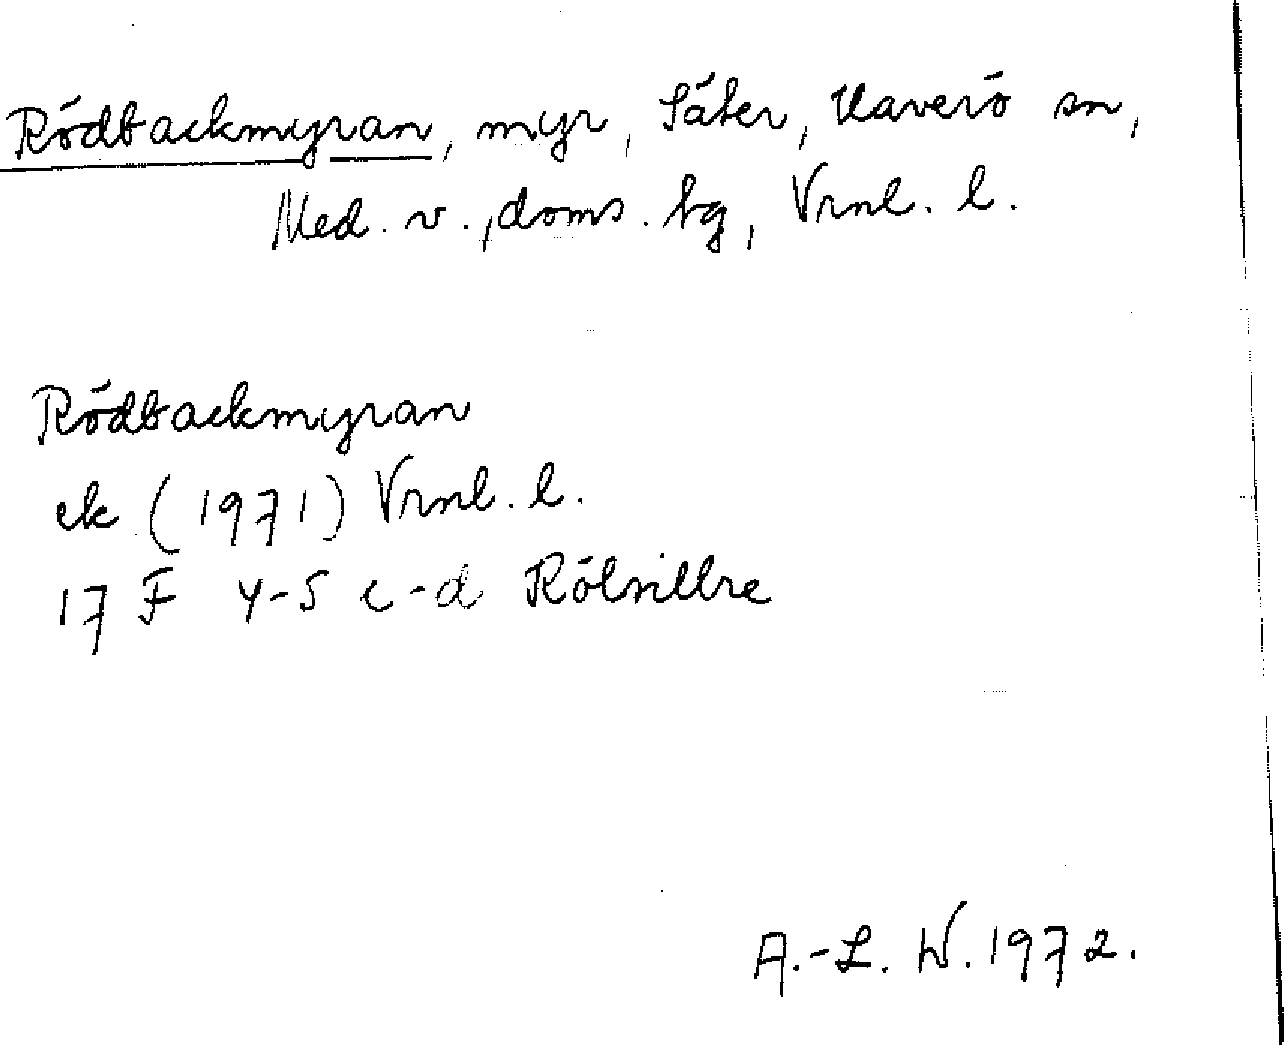 Rödbackmyran, myr, Säter, Haverö sn,
Med. v., doms. bg, Vrnl. l.
Rödbackmyran
ek (1971) Vrnl. l.
17 F 4-5 c-d Kölsillre
A.-L. W. 1972.